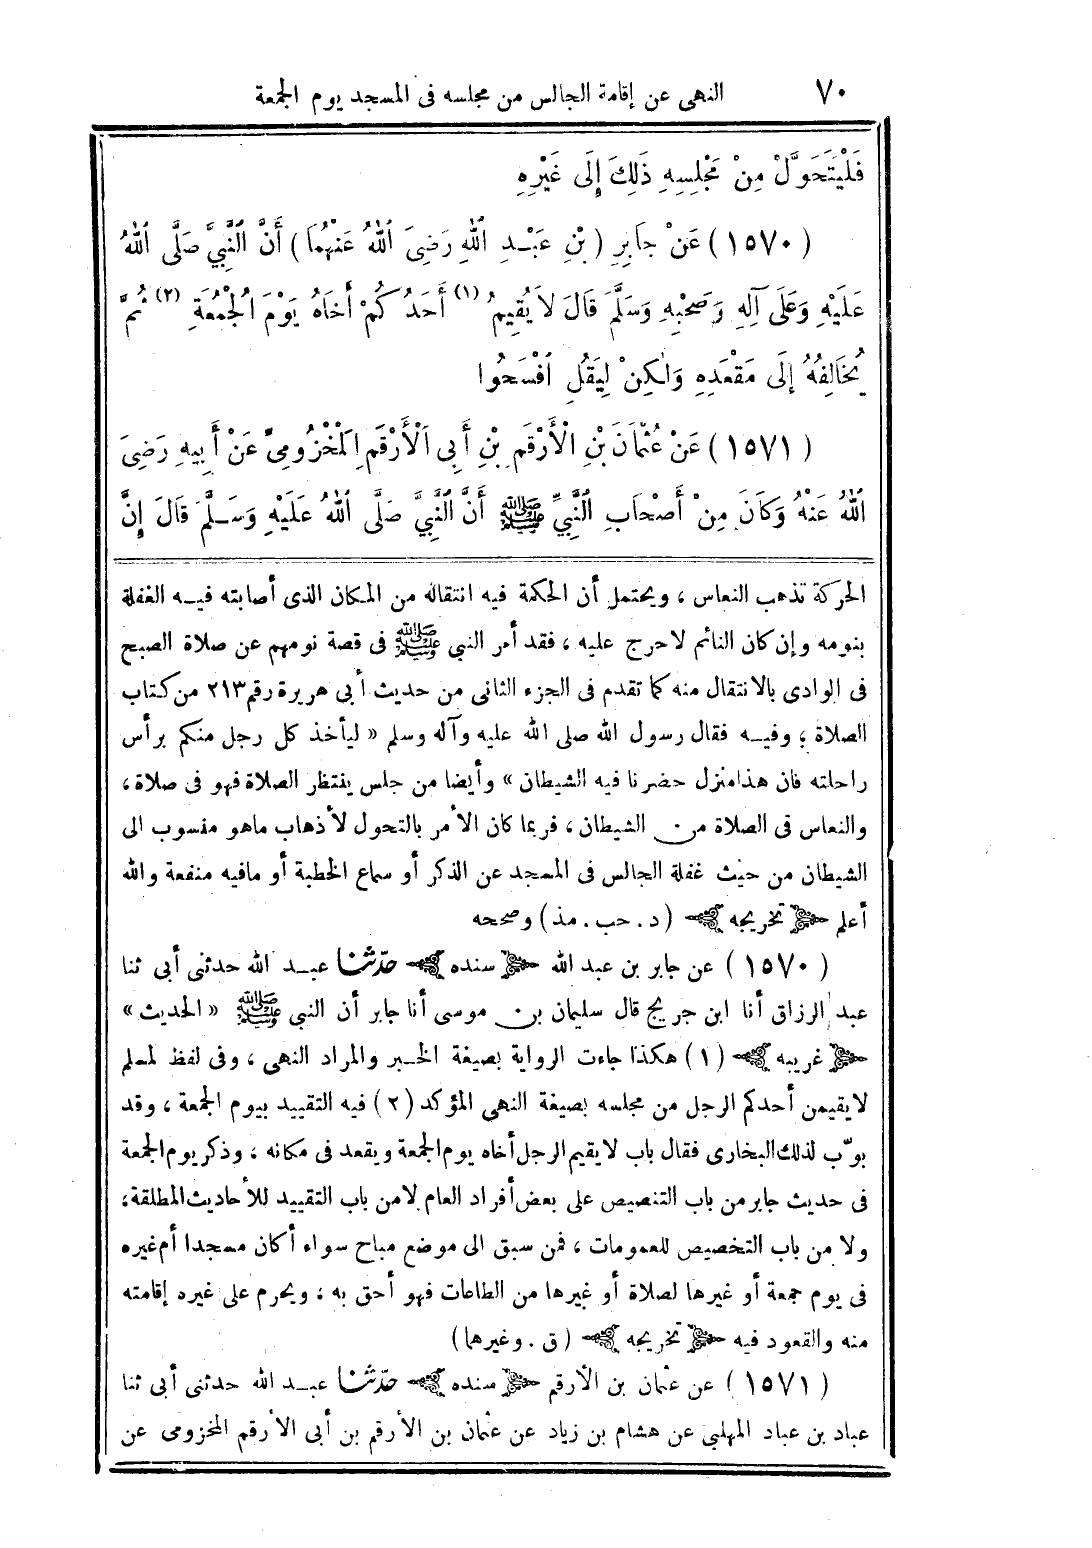 ٧٠ النهى عن إقامة الجالس من مجلسه فى المسجد يوم الجمعة
فَلْيَتَحَوَّلْ مِنْ مَجْلِسِهِ ذَلِكَ إِلَى غَيْرِهِ
(١٥٧٠) عَنْ جَابِرِ (بْنِ عَبْدِ اللهِ رَضِىَ اللهُ عَنْهُمَا) أَنَّ النَّبِيَّ صَلَّى اللهُ
عَلَيْهِ وَعَلَى آلِهِ وَصَحْبِهِ وَسَلَّمَ قَالَ لاَ يُقِيمُ (١) أَحَدُكُمْ أَخَاهُ يَوْمَ الْجُمُعَةِ (٢) ثُمَّ
يُخَالِفُهُ إِلَى مَقْعَدِهِ وَلَكِنْ لِيَقُلِ افْسَحُوا
(١٥٧١) عَنْ عُثْمَانَ بْنِ الْأَرْقَمِ بْنِ أَبِى الْأَرْقَمِ الْمَخْزُومِىِّ عَنْ أَبِيهِ رَضِىَ
اللهُ عَنْهُ وَكَانَ مِنْ أَصْحَابِ النَّبِيِّ ﷺ أَنَّ النَّبِيَّ صَلَّى اللهُ عَلَيْهِ وَسَلَّمَ قَالَ إِنَّ
الحركة تذهب النعاس ، ويحتمل أن الحكمة فيه انتقاله من المكان الذى أصابته فيه الغفلة
بنومه وإن كان النائم لاحرج عليه ، فقد أمر النبي ﷺ فى قصة نومهم عن صلاة الصبح
فى الوادى بالانتقال منه كما تقدم فى الجزء الثانى من حديث أبى هريرة رقم ٢١٣ من كتاب
الصلاة ؛ وفيه فقال رسول الله صلى الله عليه وآله وسلم « ليأخذ كل رجل منكم برأس
راحلته فان هذا منزل حضرنا فيه الشيطان » وأيضا من جلس ينتظر الصلاة فهو فى صلاة ،
والنعاس فى الصلاة من الشيطان ، فربما كان الأمر بالتحول لأذهاب ماهو منسوب الى
الشيطان من حيث غفلة الجالس فى المسجد عن الذكر أو سماع الخطبة أو مافيه منفعة والله
أعلم ﴿ تخريجه ﴾ (د . حب . مذ) وصححه
(١٥٧٠) عن جابر بن عبد الله ﴿ سنده ﴾ حدّثنا عبد الله حدثنى أبى ثنا
عبد الرزاق أنا ابن جريج قال سليمان بن موسى أنا جابر أن النبي ﷺ « الحديث »
﴿ غريبه ﴾ (١) هكذا جاءت الرواية بصيغة الخبر والمراد النهى ، وفى لفظ لمسلم
لايقيمن أحدكم الرجل من مجلسه بصيغة النهى المؤكد (٢) فيه التقييد بيوم الجمعة ، وقد
بوّب لذلك البخارى فقال باب لايقيم الرجل أخاه يوم الجمعة ويقعد فى مكانه ، وذكر يوم الجمعة
فى حديث جابر من باب التنصيص على بعض أفراد العام لامن باب التقييد للأحاديث المطلقة ،
ولا من باب التخصيص للعمومات ، فمن سبق الى موضع مباح سواء أكان مسجدا أم غيره
فى يوم جمعة أو غيرها لصلاة أو غيرها من الطاعات فهو أحق به ؛ ويحرم على غيره إقامته
منه والقعود فيه ﴿ تخريجه ﴾ (ق . وغيرها)
(١٥٧١) عن عثمان بن الأرقم ﴿ سنده ﴾ حدّثنا عبد الله حدثنى أبى ثنا
عباد بن عباد المهلبي عن هشام بن زياد عن عثمان بن الأرقم بن أبى الأرقم المخزومى عن